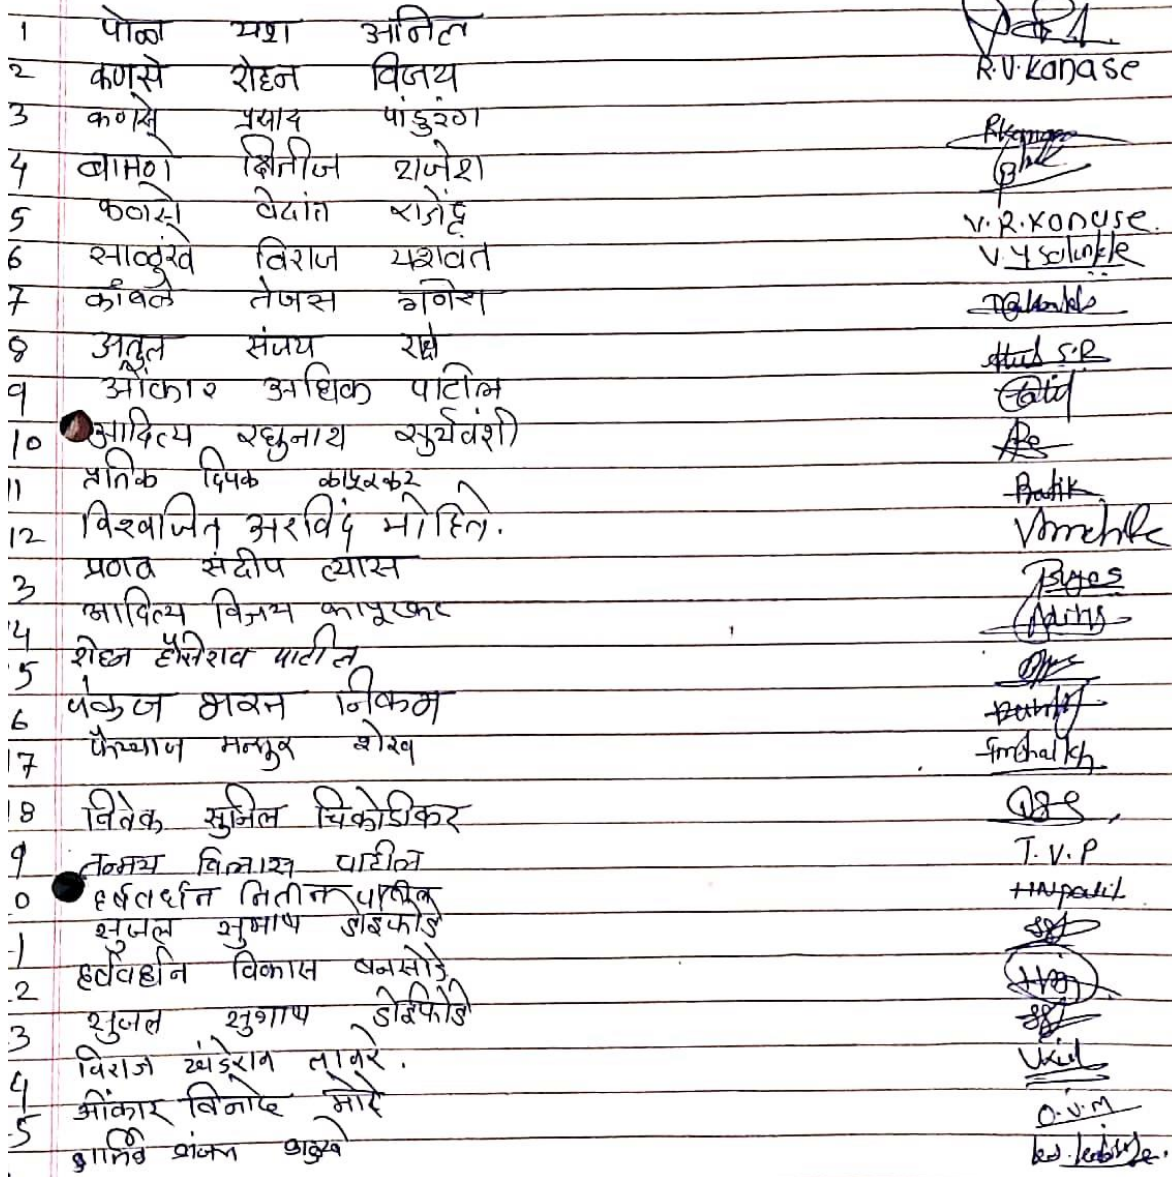 1 पोळ यश अनिल
2 कणसे रोहन विजय R.V.Kanase
3 कणसे प्रसाद पांडुरंग
4 बामणे क्षितीज राजेश
5 कणसे वेदांत राजेंद्र V.R.Kanase.
6 साळुंखे विराज यशवंत V.Y salunkhe
7 कांबळे तेजस गणेश
8 अतुल संजय
9 ओंकार अधिक पाटील Patil
10 आदित्य रघुनाथ सुर्यवंशी
11 प्रतिक दिपक कापूरकर Pratik
12 विश्वजित अरविंद मोहिते.
3 प्रणव संदीप व्यास
4 आदित्य विजय कापूरकर
5 रोहन हौसेराव पाटील
6 पंकज भरत निकम
17 फैय्याज मन्सुर शेख fmshaikh
18 विवेक सुनिल चिकोडीकर
9 तन्मय विलास पाटील T.V.P
0 हर्षवर्धन नितीन पाटील HNpatil
सुजल सुभाष डोईफोडे
1 हर्षवर्धन विकास बनसोडे
2
3 सुजल सुभाष डोईफोडे
विराज खंडेराव लावरे.
4 ओंकार विनोद मोरे O.V.M
5